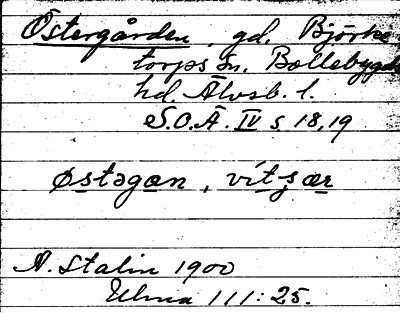 Östergården, gd. Björke
torps sn. Bollebygds
hd. Älvsb. l.
S.O.Ä. IV s 18,19
østəgan, vítsær
A. Stalin 1900
Ulma 111:25.